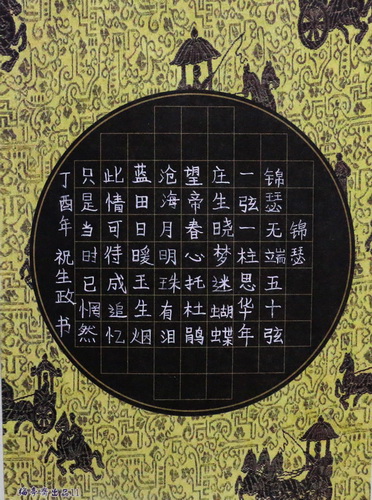 锦瑟
锦瑟无端五十弦
一弦一柱思华年
庄生晓梦迷蝴蝶
望帝春心托杜鹃
沧海月明珠有泪
蓝田日暖玉生烟
此情可待成追忆
只是当时已惘然
丁酉年 祝生政书